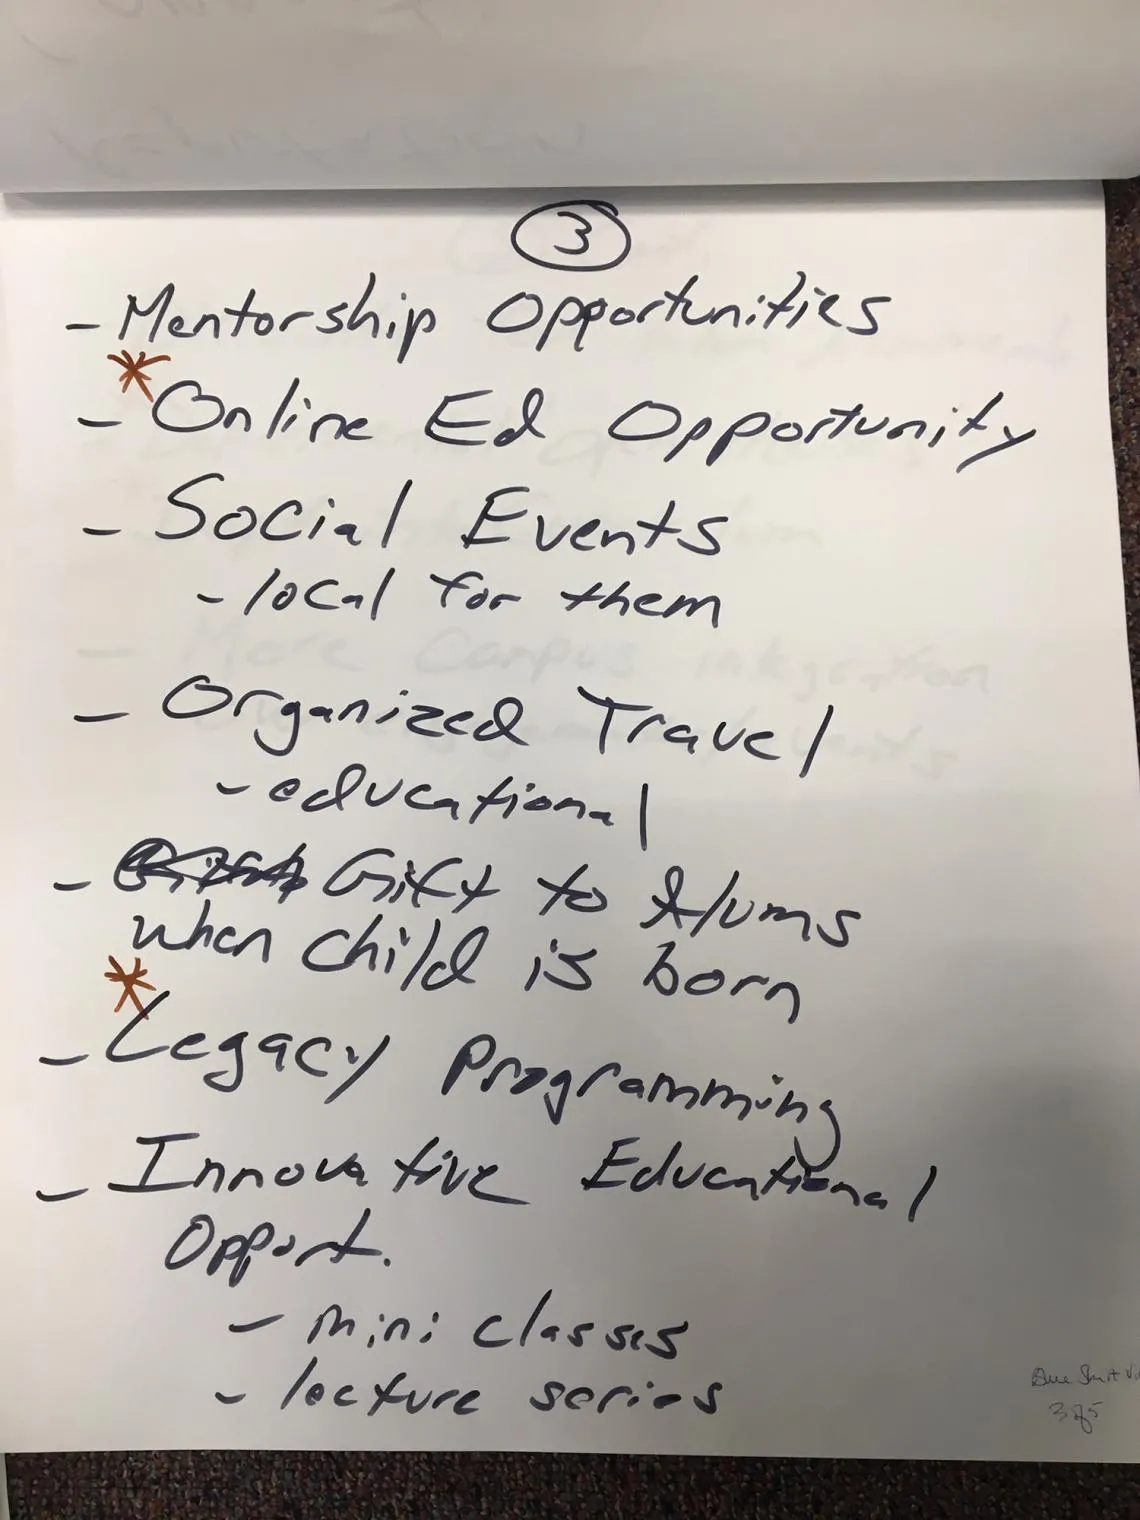 3
- Mentorship Opportunities
* - Online Ed Opportunity
- Social Events
- local for them
- Organized Travel
- educational
- Gift to Alums
when child is born
* - Legacy Programming
- Innovative Educational
Opport.
- mini classes
- lecture series
3 of 5